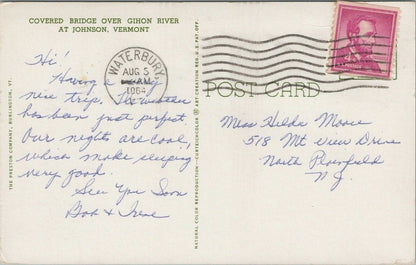 COVERED BRIDGE OVER GIHON RIVER
AT JOHNSON, VERMONT
Hi!
Having a very
nice trip. Weather
has been just perfect
our nights are cool,
which make sleeping
very good.
See You Soon
Bob & Irene
THE PRESTON COMPANY, BURLINGTON, VT.
WATERBURY
AUG 5
AM
1964
NATURAL COLOR REPRODUCTION
POST CARD
Miss Hilda Moore
518 Mt View Drive
North Plainfield
N.J.